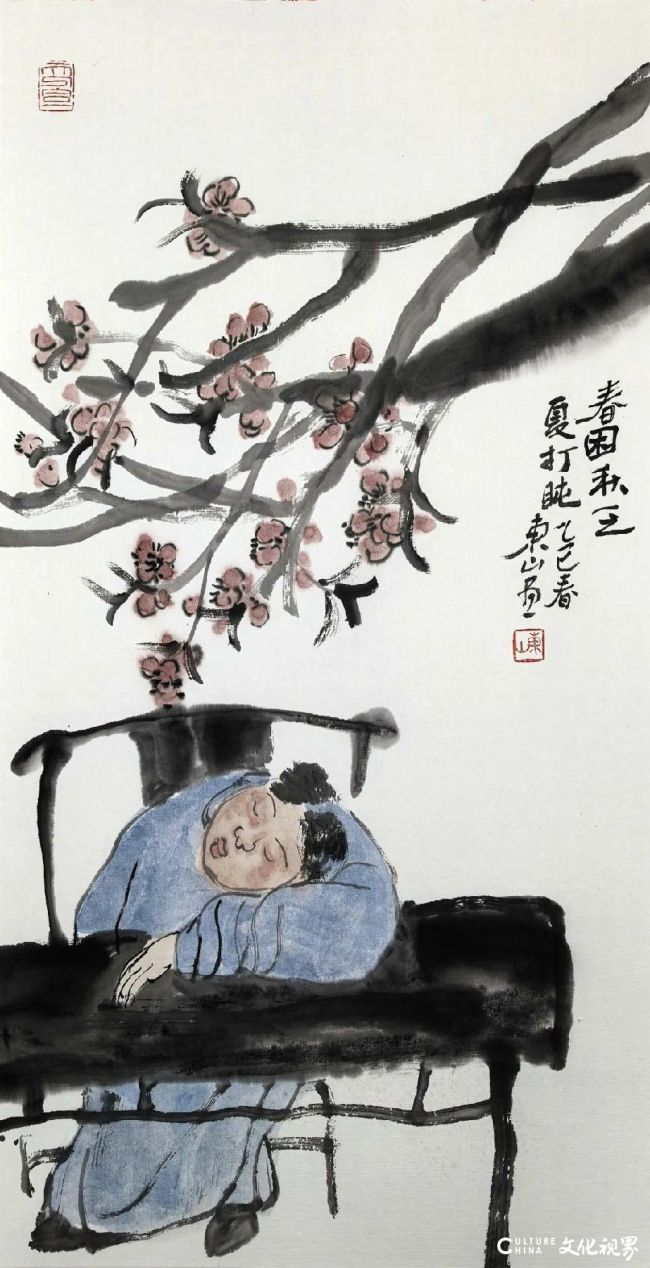 春困秋乏
夏打盹 乙巳春
東山画
東山
CULTURE
CHINA 文化视界